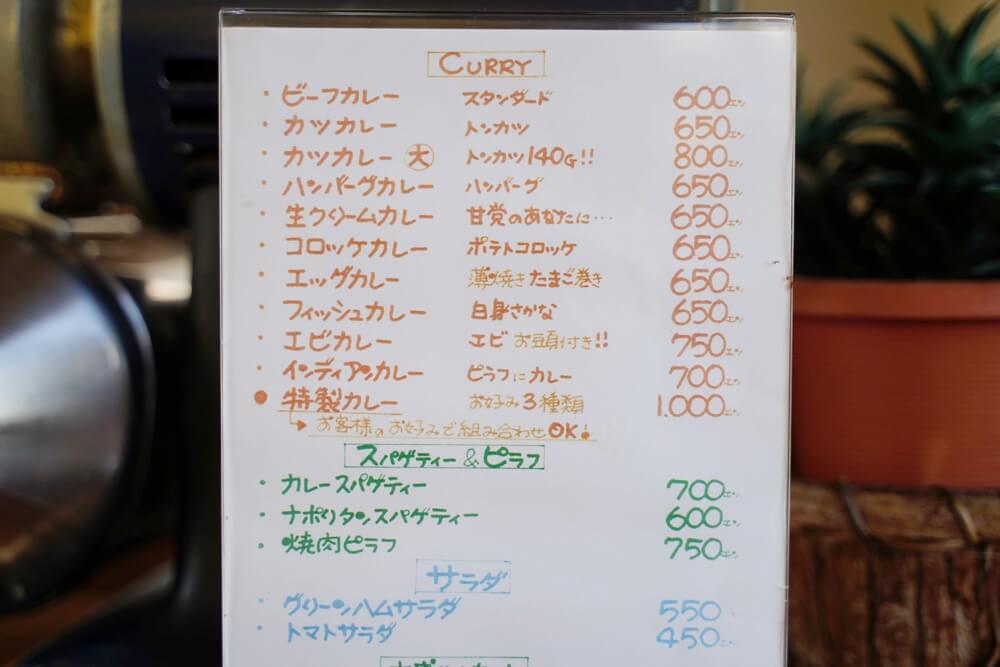 CURRY
・ビーフカレー スタンダード 600エン
・カツカレー トンカツ 650エン
・カツカレー 大 トンカツ140G!! 800エン
・ハンバーグカレー ハンバーグ 650エン
・生クリームカレー 甘党のあなたに… 650エン
・コロッケカレー ポテトコロッケ 650エン
・エッグカレー 薄焼きたまご巻き 650エン
・フィッシュカレー 白身さかな 650エン
・エビカレー エビ お豆頭付き!! 750エン
・インディアンカレー ピラフにカレー 700エン
●特製カレー お好み3種類 1.000エン
↳お客様のお好みで組み合わせOK!
スパゲティー&ピラフ
・カレースパゲティー 700エン
・ナポリタンスパゲティー 600エン
・焼肉ピラフ 750エン
サラダ
・グリーンハムサラダ 550
・トマトサラダ 450エン